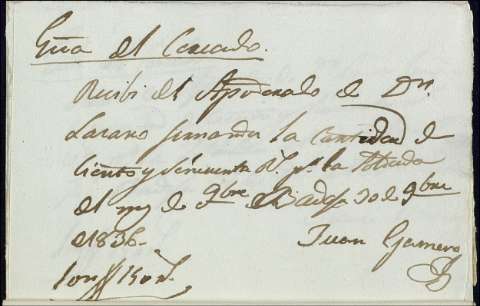 Guia del Cercado.
Recibi del Apoderado de Dn.
Lazaro fernandez la Cantidad de
Ciento y Cincuenta Rs. ps. la
del mes de 9bre. Badajz 30 de 9bre
de 1836.
Juan Gamero
Son 150 rs.